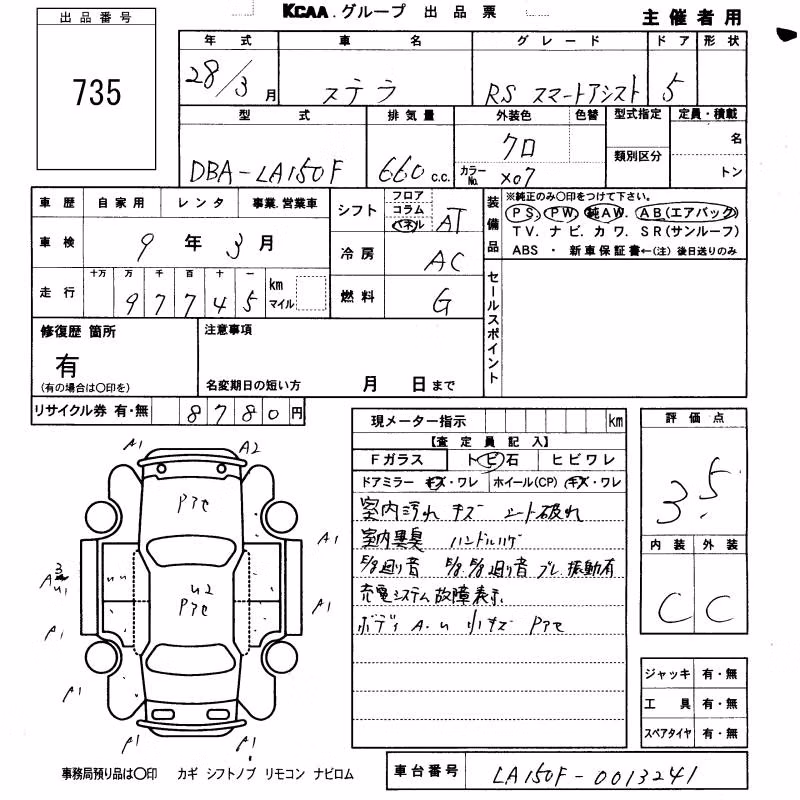 KCAA.グループ 出品票
主催者用
出品番号
735
年式 車名 グレード ドア 形状
28/3月 ステラ RS スマートアシスト 5
型式 排気量 外装色 色替 型式指定 定員・積載
DBA-LA150F 660 c.c. クロ 名
カラーNo. X07 類別区分 トン
車歴 自家用 レンタ 事業.営業車
車検 9年3月
走行 十万 万 千 百 十 一 km マイル
97745
シフト フロア コラム パネル AT
冷房 AC
燃料 G
装備品
※純正のみ○印をつけて下さい。
PS. PW. 純AW. AB(エアバック)
TV. ナビ. カワ. SR(サンルーフ)
ABS ・ 新車保証書←(注)後日送りのみ
セールスポイント
修復歴 箇所
有
(有の場合は○印を)
注意事項
名変期日の短い方 月 日まで
リサイクル券 有・無 8780円
現メーター指示 km
【査定員記入】
Fガラス トビ石 ヒビワレ
ドアミラー キズ・ワレ ホイール(CP) キズ・ワレ
室内汚れ キズ シート破れ
室内異臭 ハンドルハゲ
振動有
充電システム故障表示
ボディ A.u 小キズ
評価点
3.5
内装 外装
C C
ジャッキ 有・無
工具 有・無
スペアタイヤ 有・無
A1 A2
A1
A1
A1 A1
A1
A1 A1
U2
事務局預り品は○印 カギ シフトノブ リモコン ナビロム
車台番号 LA150F-0013241